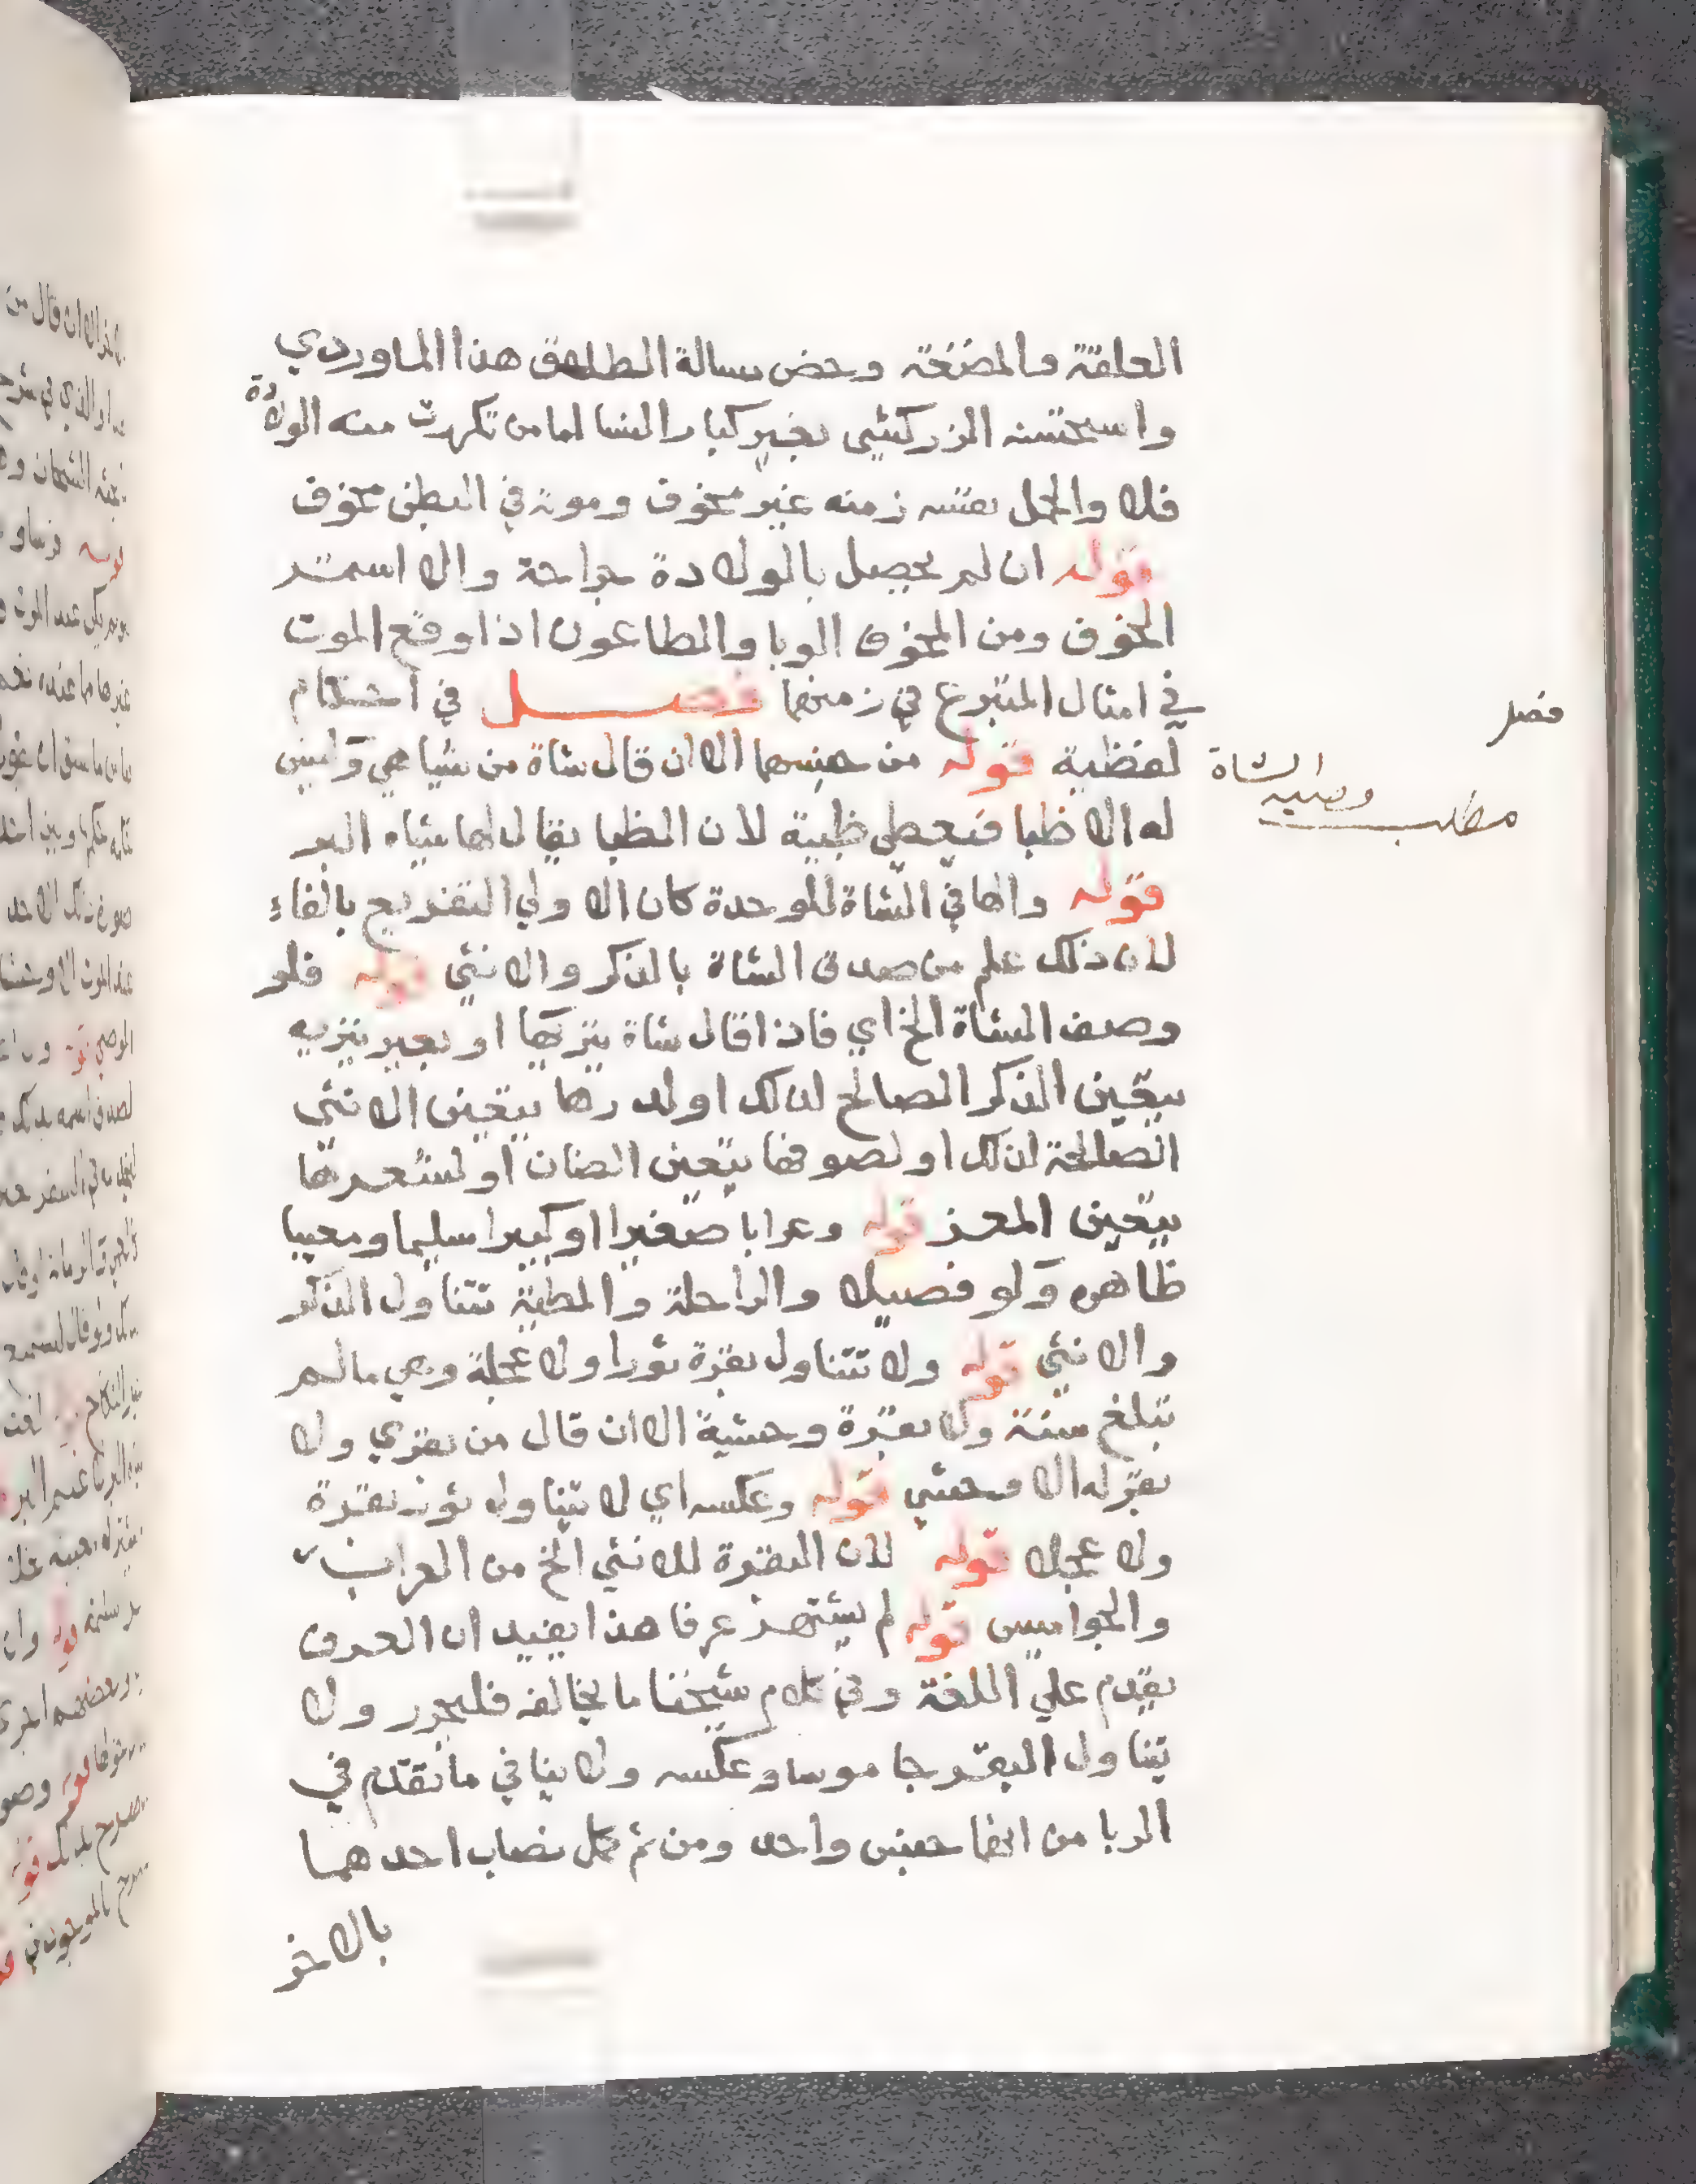 العلقة والمضغة وخص مسالة الطلق هذا الماوردي
واستحسنه الزركشي بغير كبار النسا اما من تكررت منه الولادة
فلا والحمل نفسه زمنه غير مخوف وموته في البطن مخوف
قوله ان لم يحصل بالولادة جراحة والا استمر
المخوف ومن المخوف الوبا والطاعون اذا وقع الموت
في امثال المتبرع في زمنهما فصل في احكام
لفظية قوله من جنسها الا ان قال شاة من شياهي وليس
له الا ظبا فيعطى ظبية لان الظبا يقال لها شياه البر
قوله والها في الشاة للوحدة كان الاولي التفريع بالفاء
لان ذلك علم من صدق الشاة بالذكر والانثي قوله فلو
وصف الشاة الخ اي فاذا قال شاة ينزيها او بعير ينزيه
يتعين الذكر الصالح لذلك او لدرها يتعين الانثي
الصالحة لذلك او لصوفها يتعين الضان او لشعرها
يتعين المعز قوله وعرابا صغيرا او كبيرا سليما ومعيبا
ظاهره ولو فصيلا والراحلة والمطية تتناول الذكر
والانثي قوله ولا تتناول بقرة ثورا ولا عجلة وهي ما لم
تبلغ سنة ولا بقرة وحشية الا ان قال من بقري ولا
بقر له الا وحشي قوله وعكسه اي لا يتناول ثور بقرة
ولا عجلا قوله لان البقرة للانثي الخ من العراب
والجواميس قوله لم يشتهر عرفا هذا يفيد ان العرف
يقدم علي اللغة وفي كلام شيخنا ما يخالفه فليحرر ولا
يتناول البقر جاموسا وعكسه ولا ينافي ما تقدم في
الربا من انهما جنس واحد ومن ثم كمل نصاب احدهما
بالاخر
فصل
مطلب وصية الشاة